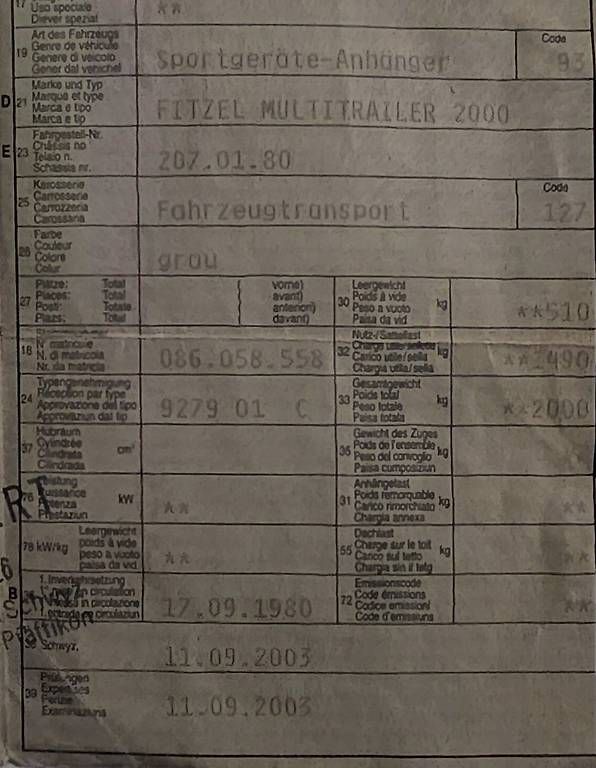 17 Uso speciale **
Diever spezial
19 Art des Fahrzeugs
Genre de véhicule
Genere di veicolo
Gener dal vehichel
Sportgeräte-Anhänger
Code
93
D 21 Marke und Typ
Marque et type
Marca e tipo
Marca e tip
FITZEL MULTITRAILER 2000
E 23 Fahrgestell-Nr.
Châssis no
Telaio n.
Schassis nr.
207.01.80
25 Karosserie
Carrosserie
Carrozzeria
Carossaria
Fahrzeugtransport
Code
127
26 Farbe
Couleur
Colore
Colur
grau
27 Plätze: Total vorne)
Places: Total avant)
Posti: Totale anteriori)
Plazs: Total davant)
30 Leergewicht
Poids à vide
Peso a vuoto
Paisa da vid
kg
**510
18
N° matricule
N. di matricola
Nr. da matricla
086.058.558
32 Nutz-/Sattellast
Charge utile/sellette
Carico utile/sella
Chargia utila/sella
kg
**1490
24 Typengenehmigung
Réception par type
Approvazione del tipo
Approvaziun dal tip
9279 01 C
33 Gesamtgewicht
Poids total
Peso totale
Paisa totala
kg
**2000
37 Hubraum
Cylindrée
Cilindrata
Cilindrada
cm³
35 Gewicht des Zuges
Poids de l'ensemble
Peso del convoglio
Paisa cumposiziun
kg
76 Leistung
Puissance
Potenza
Prestaziun
kW
**
31 Anhängelast
Poids remorquable
Carico rimorchiato
Chargia annexa
kg
**
78 kW/kg Leergewicht
poids à vide
peso a vuoto
paisa da vid
**
55 Dachlast
Charge sur le toit
Carico sul tetto
Chargia sin il tetg
kg
**
B 1. Inverkehrsetzung
en circulation
in circolazione
circulaziun
17.09.1980
72 Emissionscode
Code émissions
Codice emissioni
Code d'emissiuns
**
Schwyz
Pfäffikon
Schwyz,
11.09.2003
39 Prüfungen
Expertises
Perizie
Examinaziuns
11.09.2003